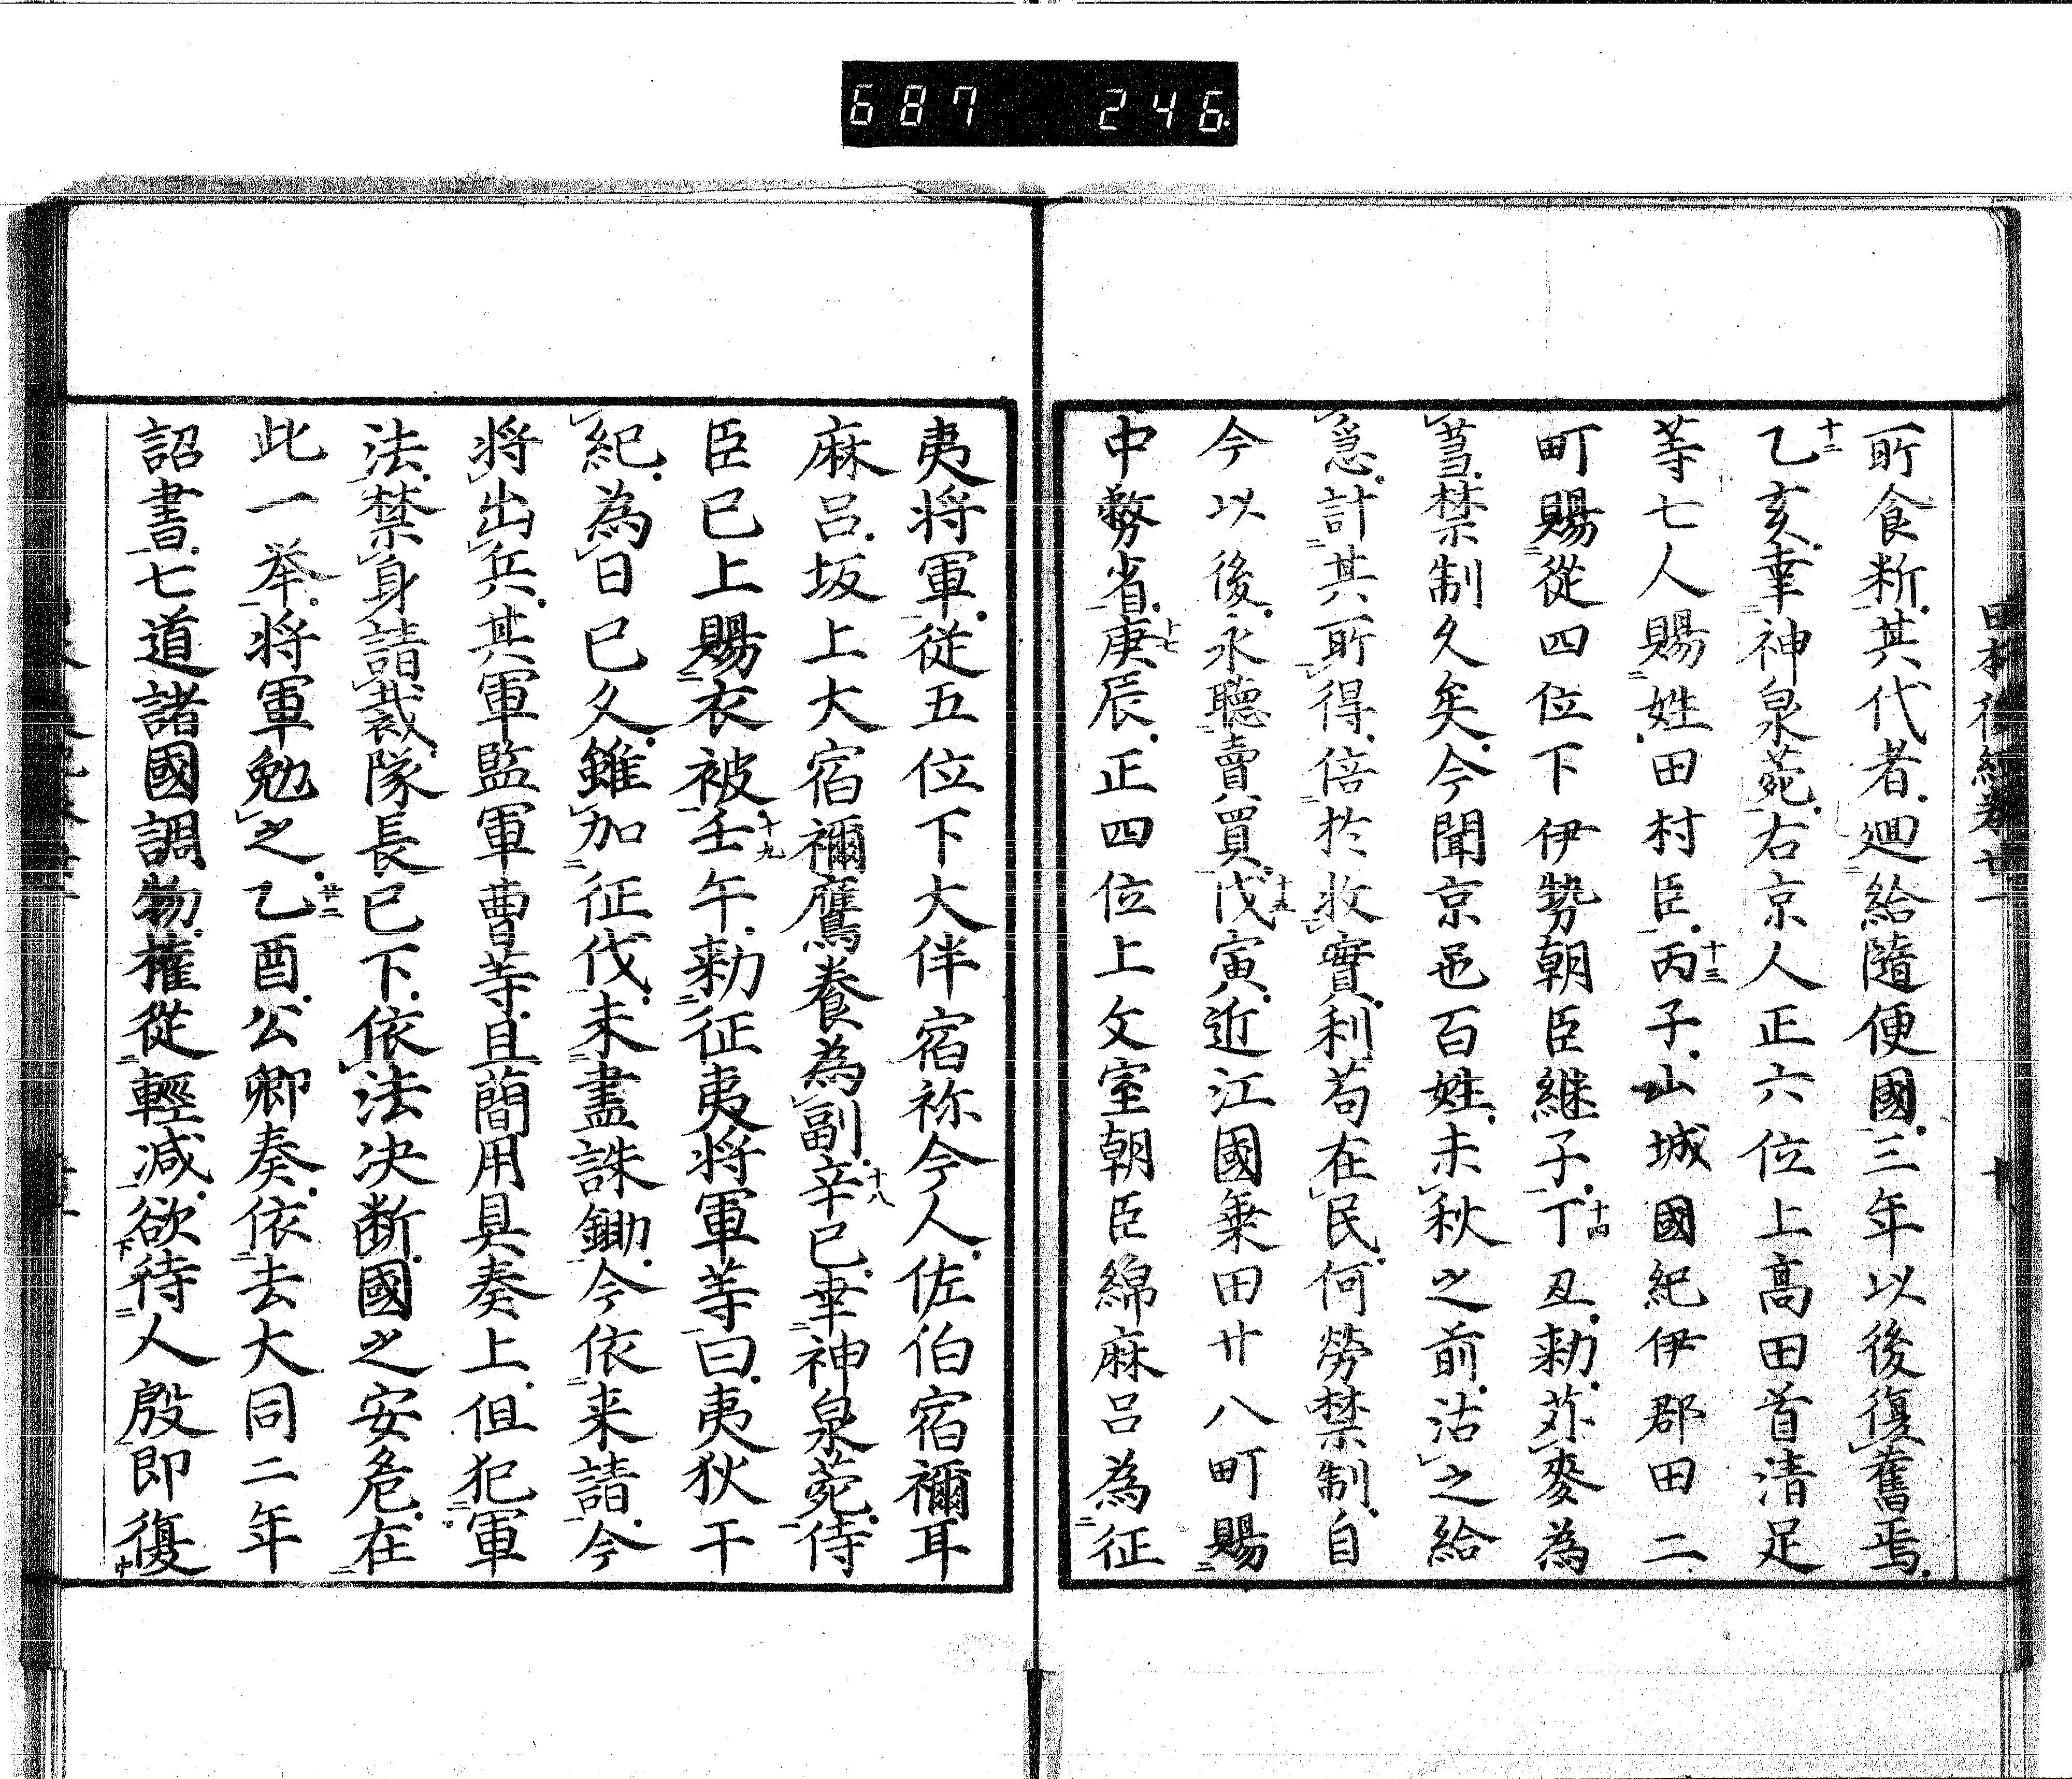 687 246
日本後紀卷廿一 十
所食断其代者廻給隨便國三年以後復舊焉
乙亥十二幸神泉苑右京人正六位上高田首清足
等七人賜姓田村臣丙十三子山城國紀伊郡田二
町賜從四位下伊勢朝臣継子丁十四丑勅苅麥為
蒭禁制久矣今聞京邑百姓未秋之前沽之給
急計其所得倍於收實利苟在民何勞禁制自
今以後永聽賣買戊十五寅近江國乗田廿八町賜
中務省庚十七辰正四位上文室朝臣綿麻呂為征
夷将軍從五位下大伴宿祢今人佐伯宿禰耳
麻呂坂上大宿禰鷹養為副辛十八巳幸神泉苑侍
臣已上賜衣被壬十九午勅征夷将軍等曰夷狄干
紀為日已久雖加征伐未盡誅鋤今依来請今
将出兵其軍監軍曹等且簡用具奏上但犯軍
法禁身請裁隊長已下依法决断國之安危在
此一举将軍勉之乙廿二酉公卿奏依去大同二年
詔書七道諸國調物權從輕減欲待人殷即復